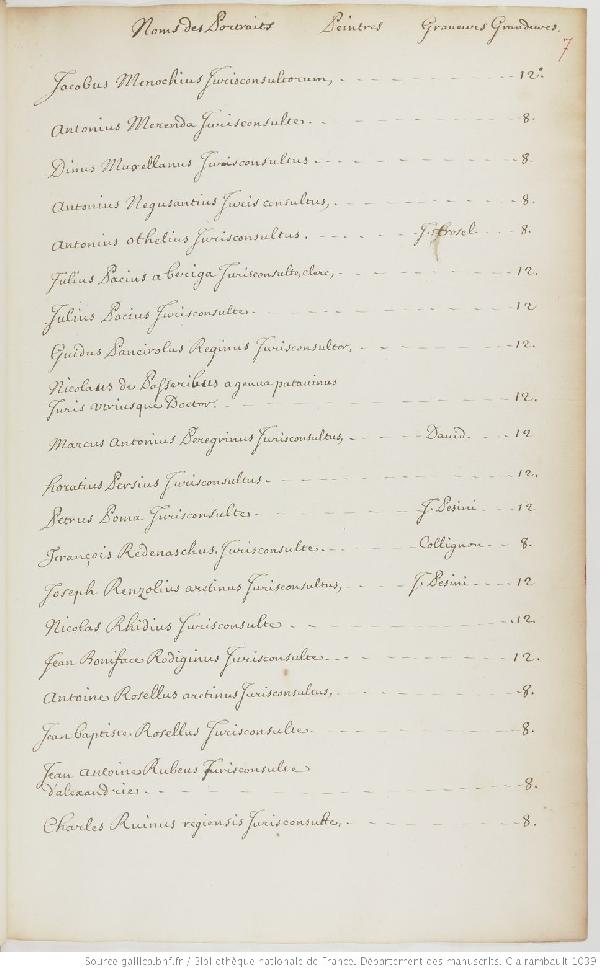 Noms des Portraits Peintres Graveurs Grandeurs.
7
Jacobus Menochius Jurisconsultorum, 12.
Antonius Merenda Jurisconsulte 8.
Dinus Muxellanus Jurisconsultus 8
Antonius Negusantius Jurisconsultus, 8.
Antonius othelius Jurisconsultus. 8.
Julius Pacius a beriga Jurisconsulte, clerc, 12.
Julius Pacius Jurisconsulte 12
Guidus Pancirolus Reginus Jurisconsultor, 12.
Nicolaus de Passeribus a genua patavinus
Juris utriusque Doctor. 12.
Marcus Antonius Peregrinus Jurisconsultus, David 12
horatius Persius Jurisconsultus 12.
Petrus Poma Jurisconsulte J. Pesini 12
François Redenaschus Jurisconsulte Collignon 8.
Joseph Renzolius aretinus Jurisconsultus, J. Pesini 12
Nicolas Rhidius Jurisconsulte 12.
Jean Boniface Rodiginus Jurisconsulte 12.
Antoine Rosellus aretinus Jurisconsultus, 8.
Jean baptiste Rosellus Jurisconsulte 8.
Jean antoine Rubeus Jurisconsulte
d'alexandrie 8.
Charles Ruinus regiensis Jurisconsulte, 8.
Source gallica.bnf.fr / Bibliothèque nationale de France. Département des manuscrits. Clairambault 1039